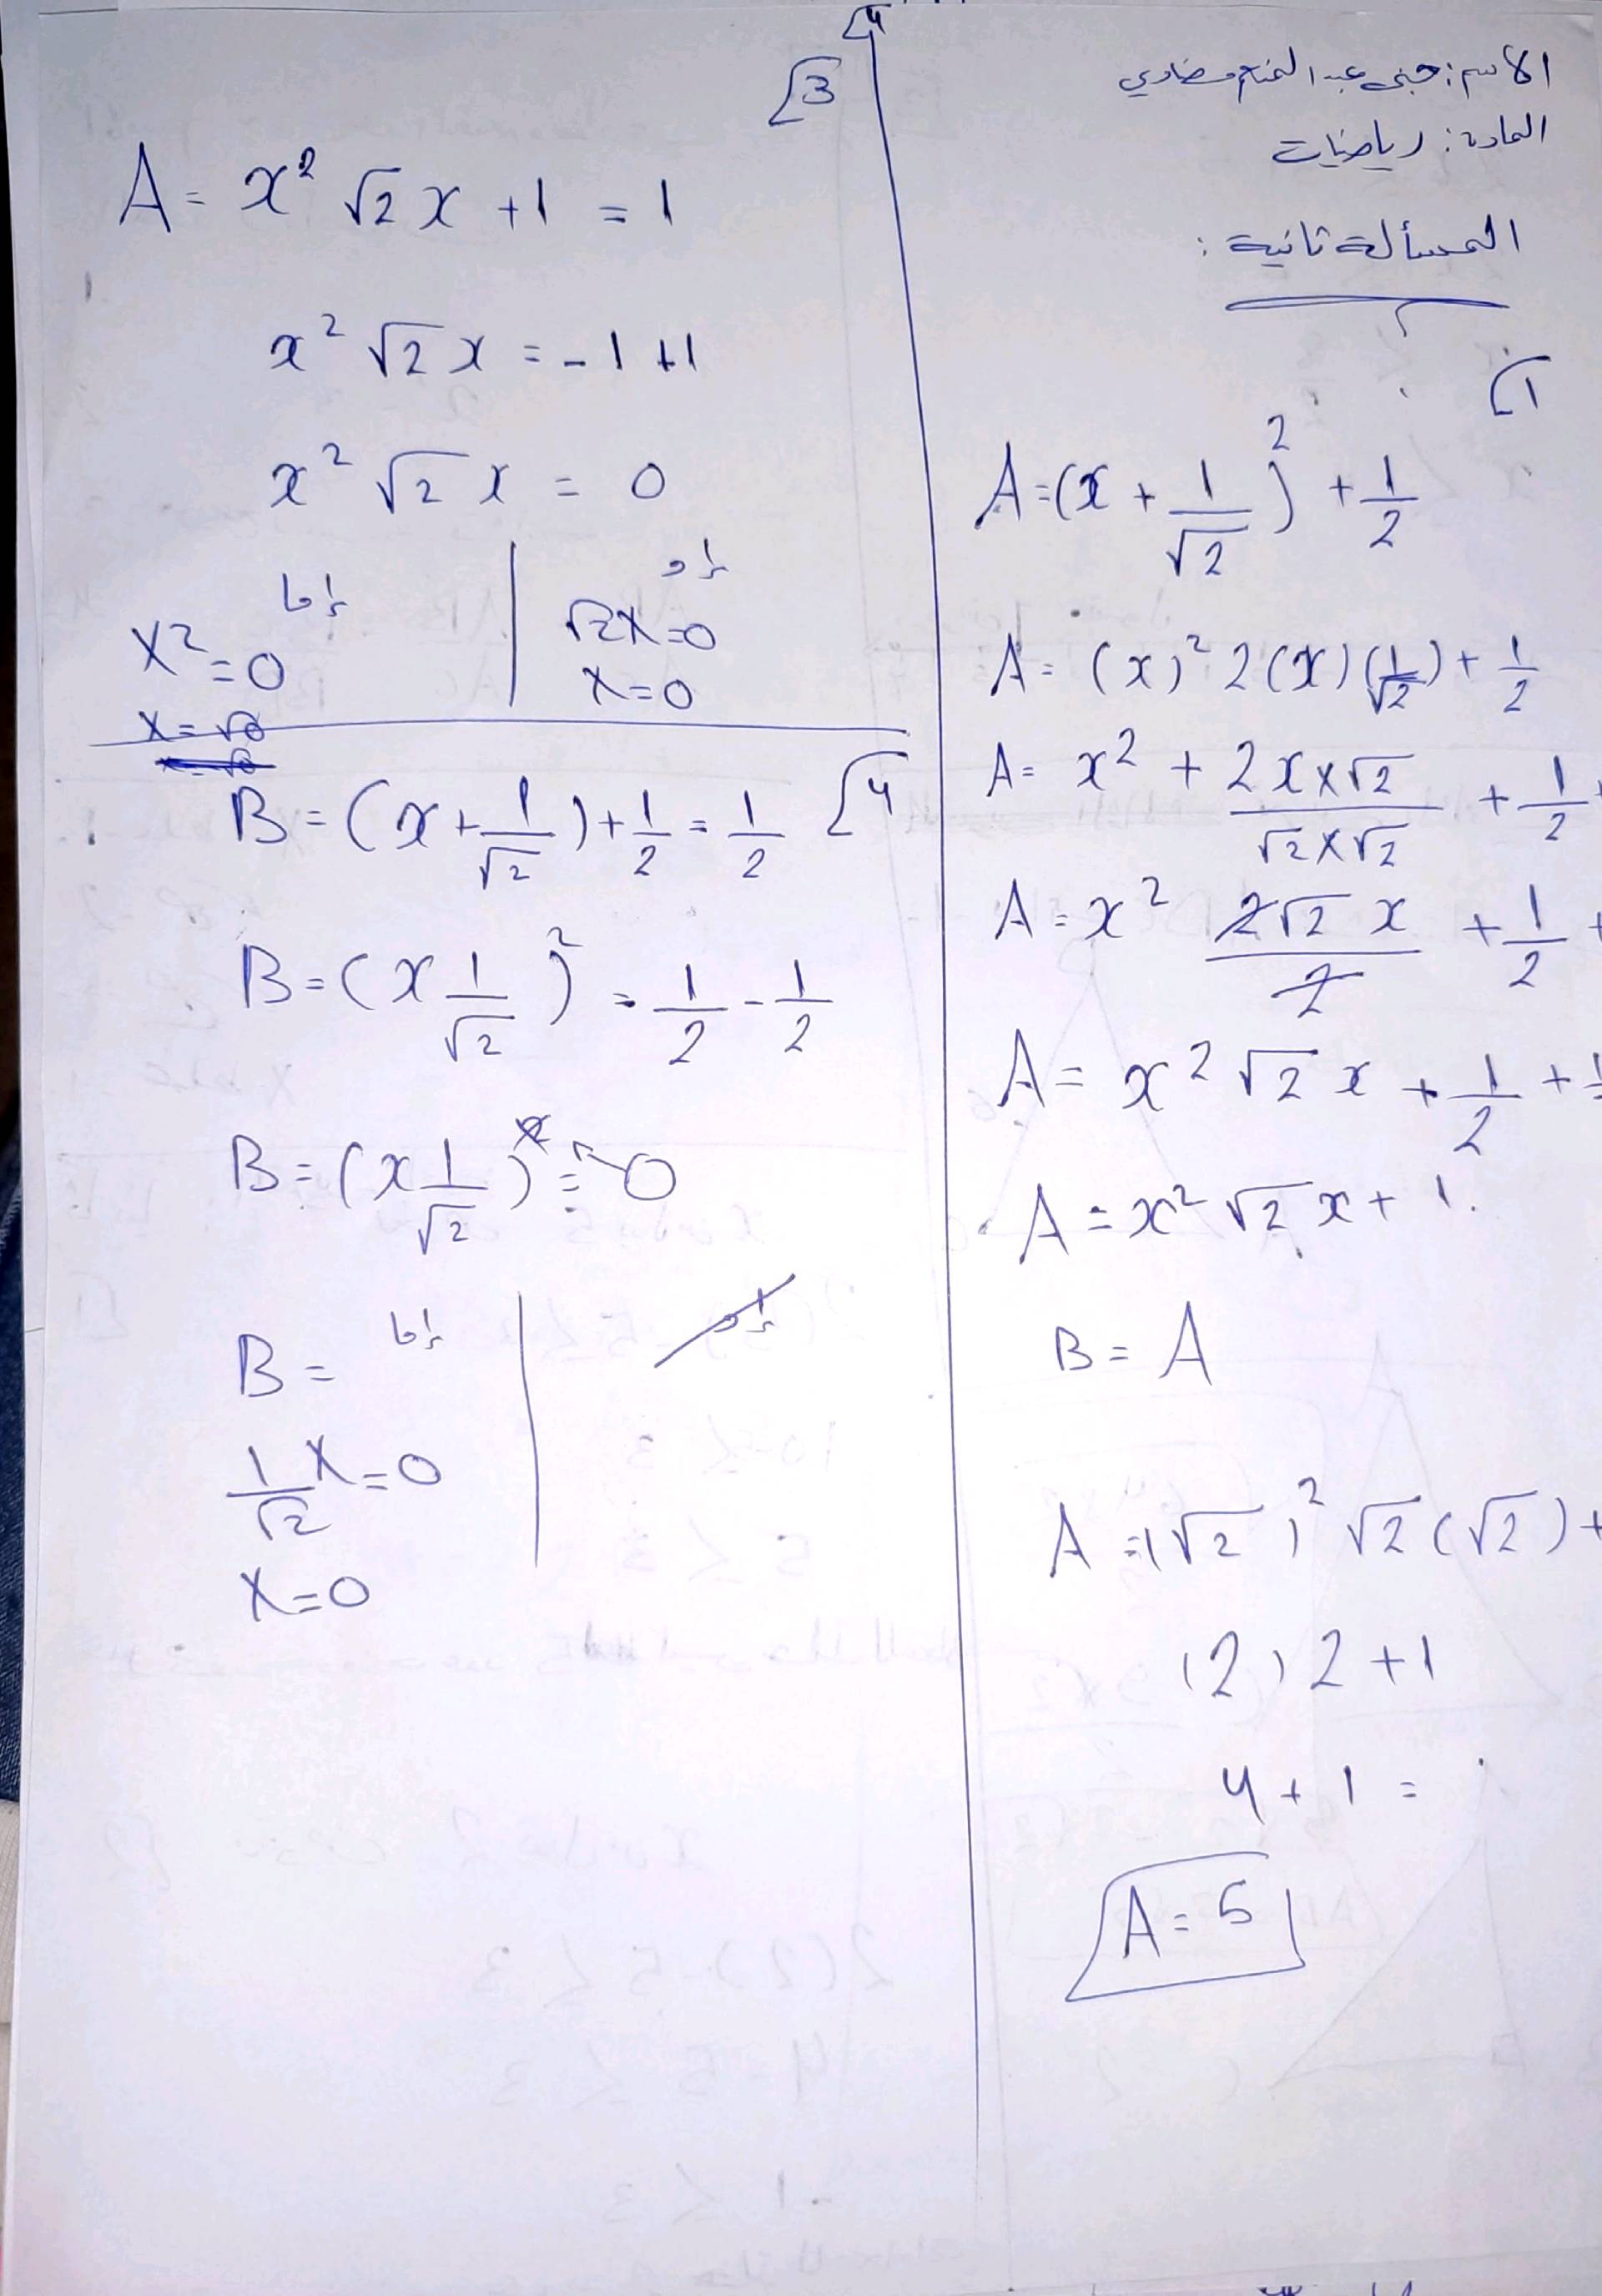 الاسم: جنى عبد المنعم مضاوي
المادة: رياضيات
المسألة ثانية:
1
A=(x+1/√2)²+1/2
A=(x)²2(x)(1/√2)+1/2
A=x²+2x×√2/√2×√2+1/2+
A=x² 2√2x/2+1/2+
A=x²√2x+1/2+1
A=x²√2x+1.
B=A
A=(√2)²√2(√2)+
(2)2+1
4+1=
A=5
4
3
A=x²√2x+1=1
x²√2x=-1+1
x²√2x=0
إما
x²=0
x=√0
إو
√2x=0
x=0
4
B=(x+1/√2)+1/2=1/2
B=(x 1/√2)²=1/2-1/2
B=(x 1/√2)²=0
إما
إو
B=
1/√2 x=0
x=0